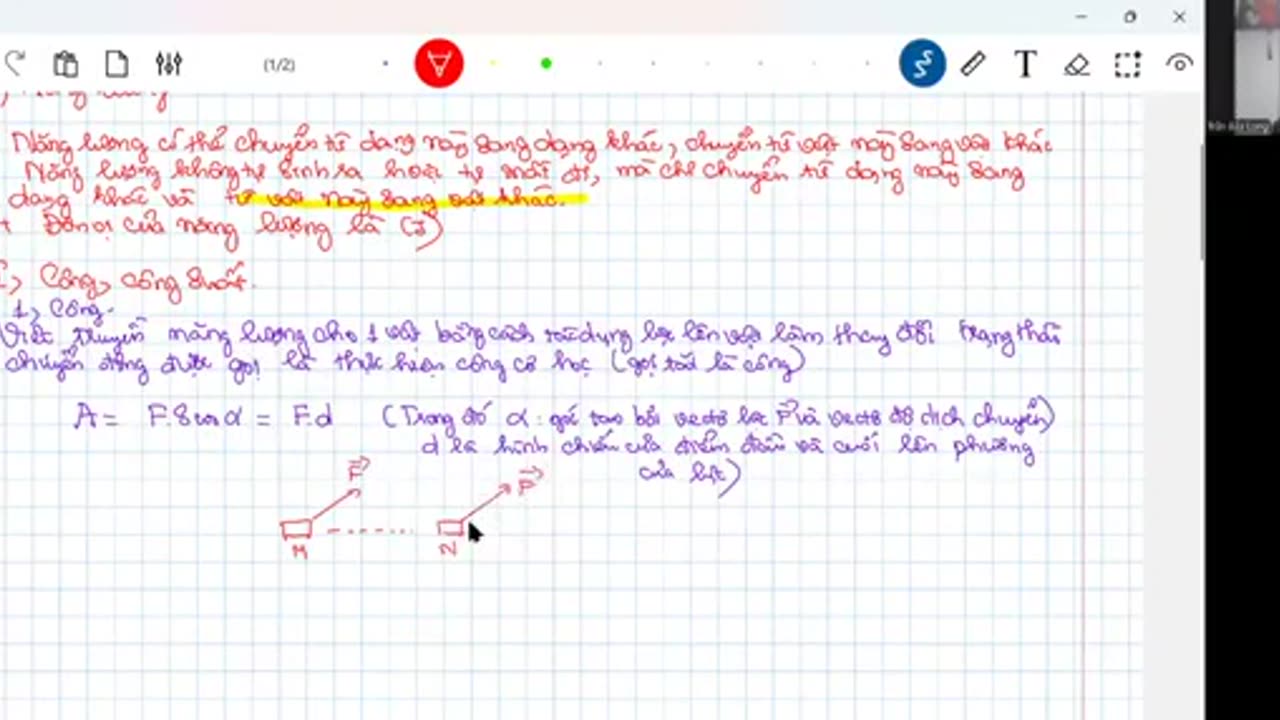 (1/2)
T
Năng lượng
Năng lượng có thể chuyển từ dạng này sang dạng khác, chuyển từ vật này sang vật khác
Năng lượng không tự sinh ra hoặc tự mất đi, mà chỉ chuyển từ dạng này sang
dạng khác và từ vật này sang vật khác.
+ Đơn vị của năng lượng là (J)
Công, công suất.
1, Công.
Việc truyền năng lượng cho 1 vật bằng cách tác dụng lực lên vật làm thay đổi trạng thái
chuyển động được gọi là thực hiện công cơ học (gọi tắt là công)
A = F.S cos α = F.d (Trong đó α: góc tạo bởi vectơ lực F và vectơ độ dịch chuyển)
d là hình chiếu của điểm đầu và cuối lên phương
của lực)
F F
M N